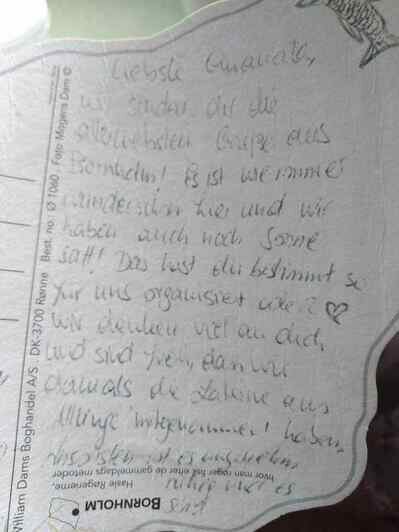 Liebste
wir senden dir die
allerliebsten Grüße aus
Bornholm! Es ist wie immer
wunderschön hier und wir
haben auch noch Sonne
satt! Das hast du bestimmt so
für uns organisiert oder? ♡
Wir denken viel an dich
und sind froh, dass wir
damals die aus
Allinge mitgenommen haben.
es
William Dams Boghandel A/S DK-3700 Rønne Best. no.: Ø 1060 Foto Mogens Dam ©
BORNHOLM
Hasle Røgerierne,
hvor man røger fisk efter de gammeldags metoder